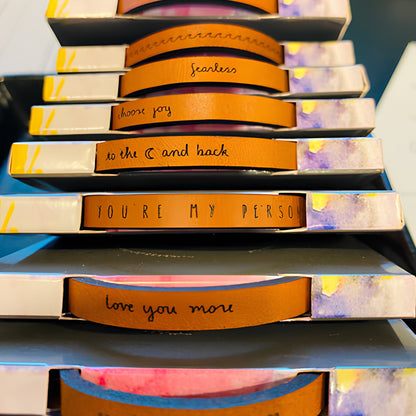 fearless
choose joy
to the ☾ and back
YOU'RE MY PERSO
love you more